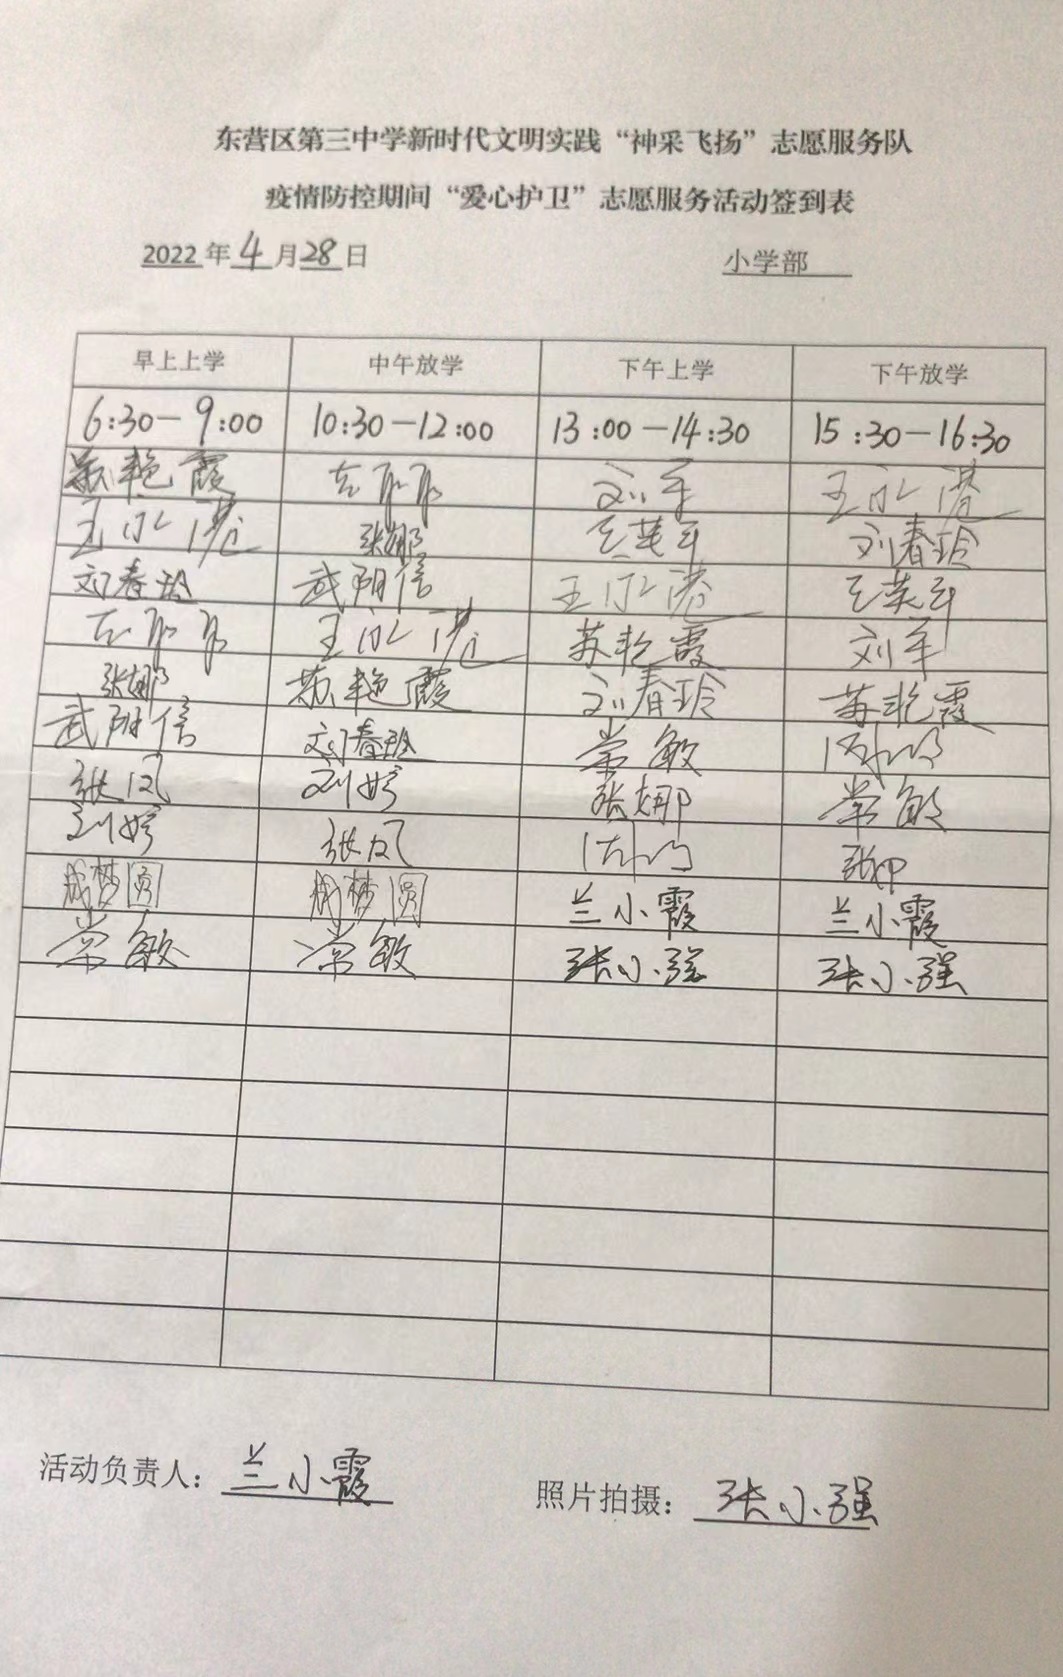 东营区第三中学新时代文明实践“神采飞扬”志愿服务队
疫情防控期间“爱心护卫”志愿服务活动签到表
2022年4月28日 小学部
早上上学 中午放学 下午上学 下午放学
6:30-9:00 10:30-12:00 13:00-14:30 15:30-16:30
苏艳霞 刘军 王永港
王永港 张娜 刘春玲
刘春玲 王永港
王永港 苏艳霞 刘军
张娜 苏艳霞 刘春玲 苏艳霞
刘春玲 常敏
张凤 刘婷 张娜 常敏
刘婷 张凤 张娜
兰小霞 兰小霞
常敏 常敏 张小强 张小强
活动负责人：兰小霞 照片拍摄：张小强